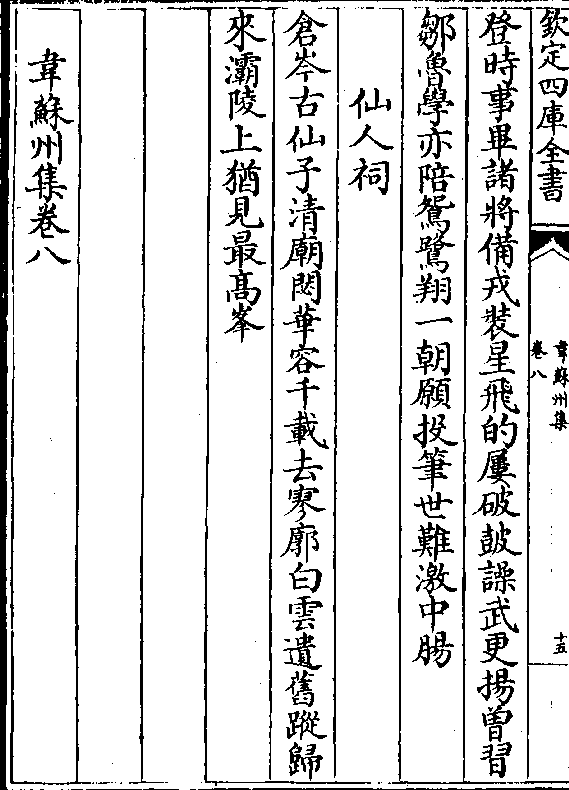 欽定四庫全書
韋蘇州集
卷八
十五
登時事畢諸將備戎裝星飛的屢破鼓譟武更揚曽習
鄒魯學亦陪鴛鷺翔一朝願投筆世難激中腸
仙人祠
倉岑古仙子清廟閟華容千載去寥廓白雲遺舊蹤歸
來灞陵上猶見最髙峯
韋蘇州集卷八